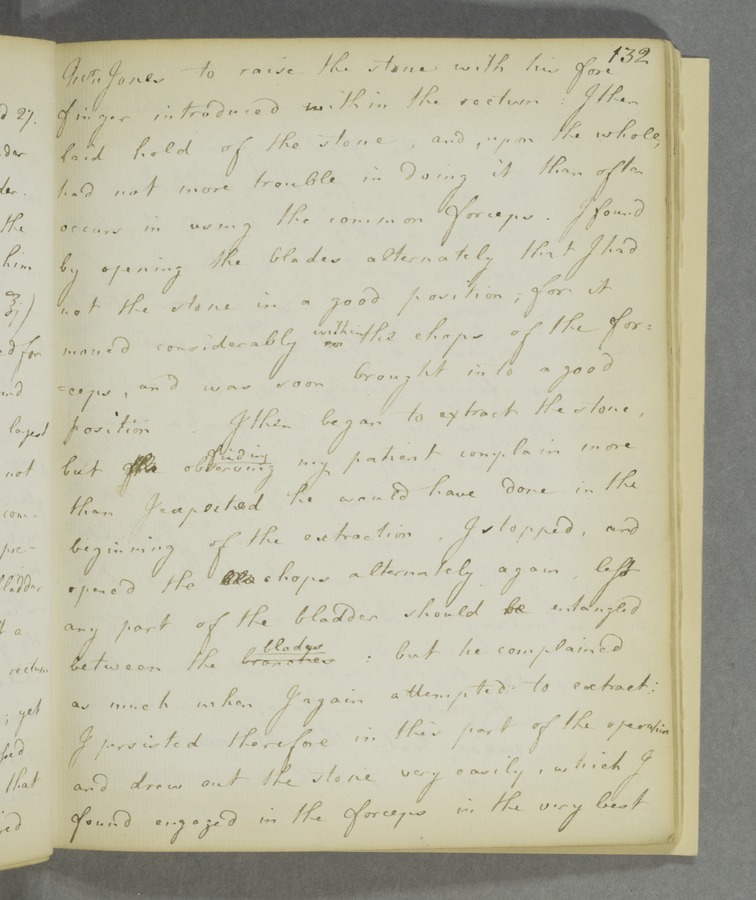 132
Gwn Jones to raise the stone with his fore
d 27. finger introduced within the rectum : I then
laid hold of the stone, and, upon the whole,
had not more trouble in doing it than often
the occurs in using the common forceps. I found
him by opening the blades alternately that I had
not the stone in a good position; for it
ed for moved considerably within the chaps of the for=
=ceps, and was soon brought into a good
largest position. I then began to extract the stone,
not but observing finding my patient complain more
com- than I expected he would have done in the
beginning of the extraction, I stopped, and
bladder opened the chaps alternately again, lest
t a any part of the bladder should be entangled
rectum between the branches blades : but he complained
; yet as much when I again attempted to extract:
I persisted therefore in this part of the operation
that and drew out the stone very easily, which I
found engaged in the forceps in the very best